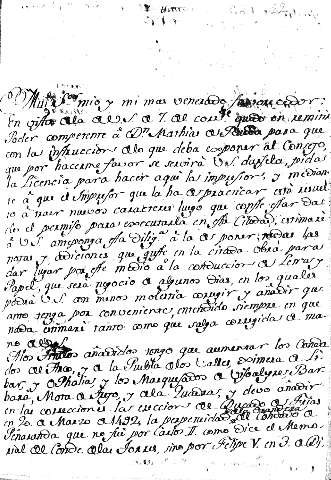 Muy Sr. mio y mi mas venerado favorecedor:
En vista de la de V.S. de 7. del corrte. quedo en remitir
Poder competente à Dn. Mathias de Rueda para que
con las instrucciones de lo que deba exponer al Consejo,
que por hacerme favor se servirà V.S. darsela, pida
la Licencia para hacer aqui la impresion, y median
te à que el Impresor que la ha de practicar està resuel
to à traer nuevos caracteres luego que conste estar da
do el permiso para executarla en esta Ciudad, estimarè
à V.S. anteponga esta dilig.a à la de poner todas las
notas y adiciones que guste en la citada obra para
dar lugar por este medio à la conduccion de Letras y
Papel, que serà negocio de algunos dias, en los quales
podrà V.S. con menos molestia corregir y añadir quan
to tenga por conveniente; entendido siempre en que
nada estimarè tanto como que salga corregida de ma
no de V.S.
A los Titulos añadidos tengo que aumentar los Condados
de y la Puebla de los Valles,
y los Marquesados de
Mota de y de la y devo añadir
en las correcciones las erecciones de Ducado de Frias
en 20 de Marzo de 1492, la perpetuidad de la Grandeza de Condado de
Peñaranda que no fuè por Carlos II. como dice el Memo
rial del Conde de las Torres, sino por Felipe V. en 3. de